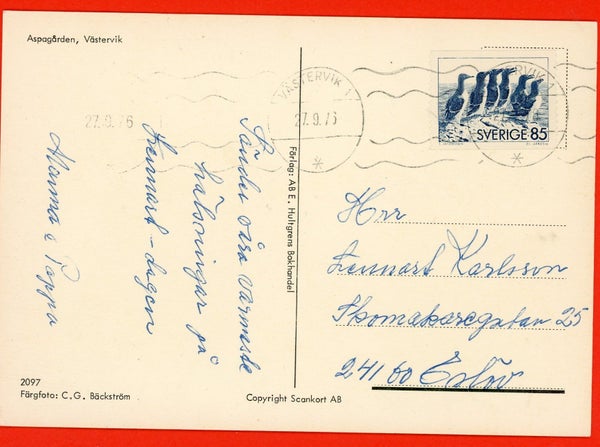 Aspagården, Västervik
VÄSTERVIK 1
27.9.76
27.9.76
SVERIGE 85
Sänder våra varmaste
hälsningar på
Lennart-dagen
Mamma & Pappa
Förlag: AB E. Hultgrens Bokhandel
Herr
Lennart Karlsson
Skomakaregatan 25
241 00 Eslöv
2097
Färgfoto: C.G. Bäckström
Copyright Scankort AB